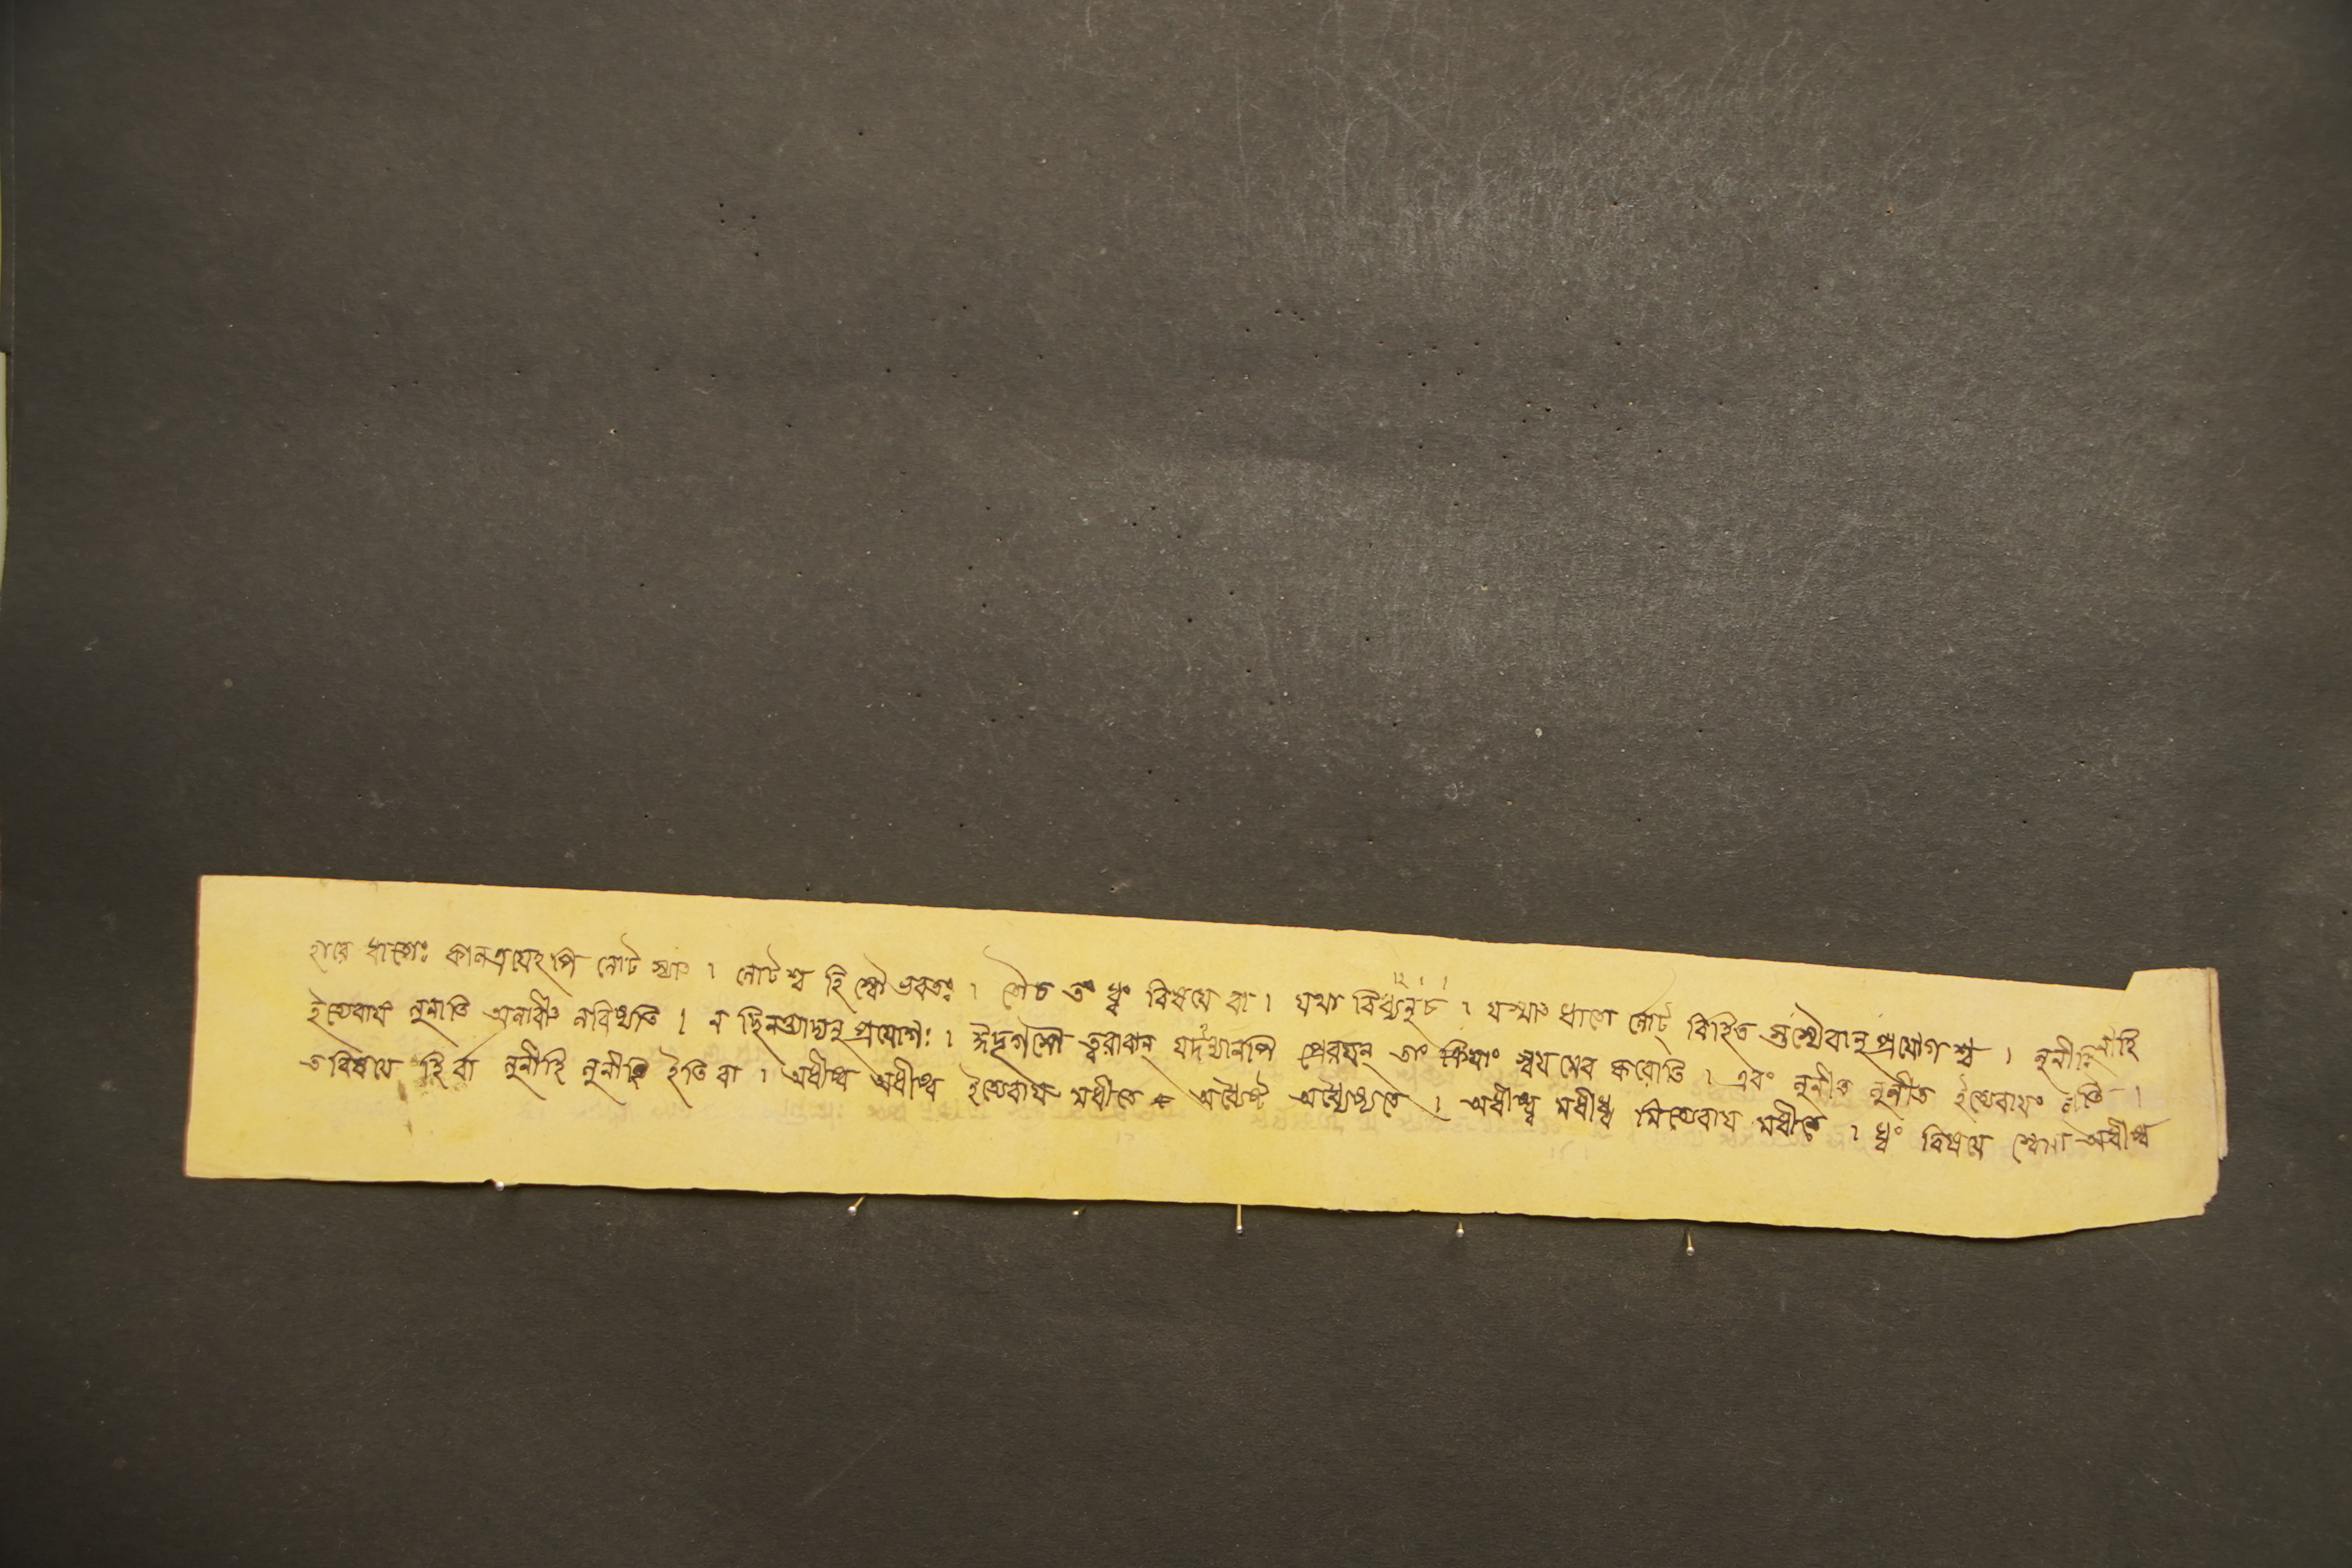 হারে ধাতোঃ কালত্রয়েঽপি লোট স্যাৎ । লোটশ্চ হি স্বৌ ভবতঃ । তৌ চ ত ধ্বং বিষয়ে বা । যথা বিধ্যনু চ । যস্মাৎ ধাতো র্লোট্ বিহিত স্তস্যৈবানুপ্রয়োগশ্চ । লুনীহি লুনীহি
ইত্যেবায়ং লুনাতি অলাবীৎ লবিষ্যতি । ন ছিনত্ত্যাদ্যনুপ্রয়োগঃ । ঈদৃগসৌ ত্বরাবান্ যদন্যানপি প্রেরয়ন্ তাং ক্রিয়াং স্বয়মেব করোতি । এবং লুনীত লুনীত ইত্যেবায়ং
ত বিষয়ে হি র্বা লুনীহি লুনীহি ইতি বা । অধীষ্ব অধীষ্ব ইত্যেবায় মধীতে অধ্যৈষ্ট অধ্যৈষ্যতে । অধীধ্ব মধীধ্ব মিত্যেবায় মধীতে । ধ্বং বিষয়ে অধীষ্ব